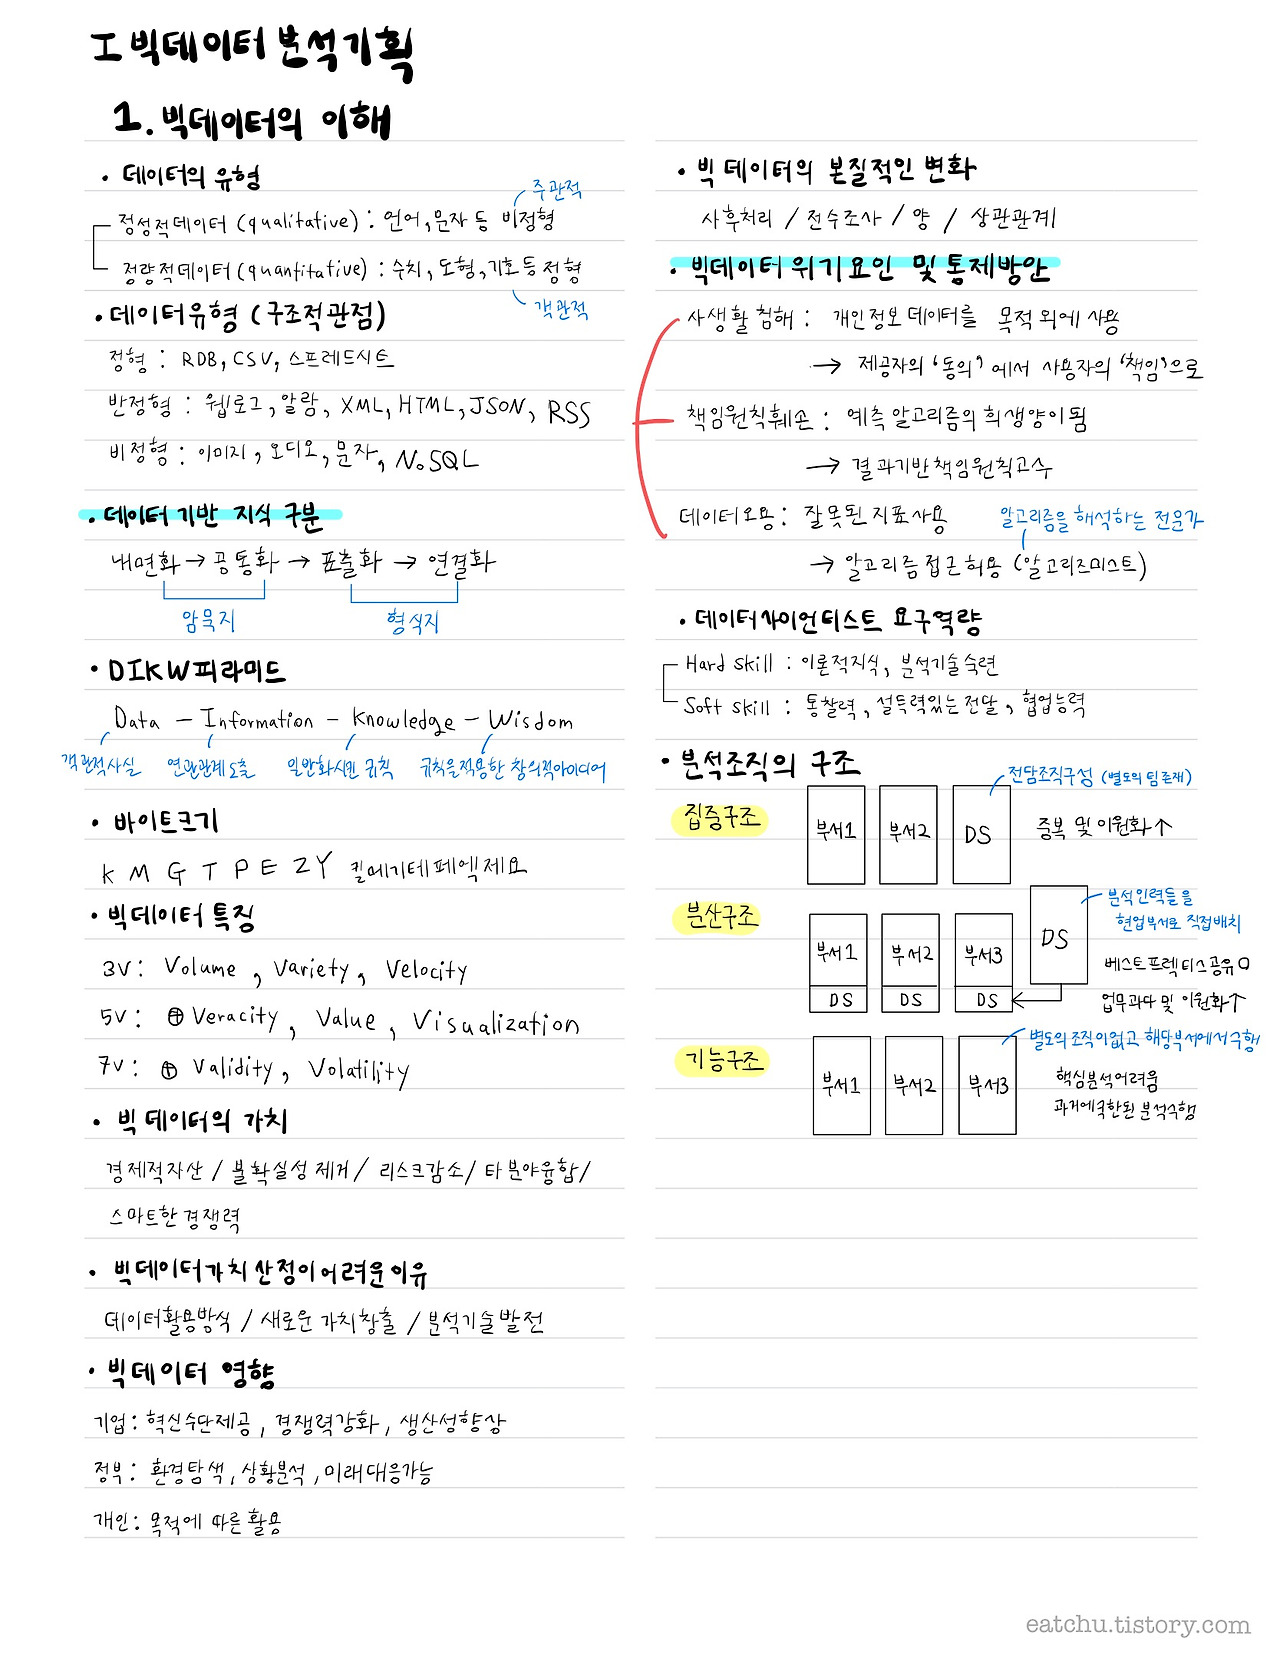 I 빅데이터 분석기획
1. 빅데이터의 이해
• 데이터의 유형
주관적
정성적데이터 (qualitative) : 언어, 문자 등 비정형
정량적데이터 (quantitative) : 수치, 도형, 기호 등 정형
객관적
• 데이터유형 (구조적관점)
정형 : RDB, CSV, 스프레드시트
반정형 : 웹로그, 알람, XML, HTML, JSON, RSS
비정형 : 이미지, 오디오, 문자, NoSQL
• 데이터기반 지식 구분
내면화 → 공통화 → 표출화 → 연결화
암묵지 형식지
• DIKW피라미드
Data - Information - Knowledge - Wisdom
객관적사실 연관관계도출 일반화시킨 규칙 규칙을적용한 창의적아이디어
• 바이트크기
K M G T P E Z Y 킬메기테페엑제요
• 빅데이터 특징
3V : Volume, Variety, Velocity
5V : ⊕ Veracity, Value, Visualization
7V : ⊕ Validity, Volatility
• 빅데이터의 가치
경제적자산 / 불확실성 제거 / 리스크감소 / 타분야융합 /
스마트한 경쟁력
• 빅데이터가치 산정이 어려운이유
데이터활용방식 / 새로운 가치창출 / 분석기술발전
• 빅데이터 영향
기업 : 혁신수단제공, 경쟁력강화, 생산성향상
정부 : 환경탐색, 상황분석, 미래대응가능
개인 : 목적에 따른 활용
• 빅데이터의 본질적인 변화
사후처리 / 전수조사 / 양 / 상관관계
• 빅데이터 위기요인 및 통제방안
사생활 침해 : 개인정보 데이터를 목적 외에 사용
→ 제공자의 '동의' 에서 사용자의 '책임'으로
책임원칙훼손 : 예측 알고리즘의 희생양이 됨
→ 결과기반책임원칙고수
데이터오용 : 잘못된 지표사용
알고리즘을 해석하는 전문가
→ 알고리즘접근허용 (알고리즈미스트)
• 데이터사이언티스트 요구역량
Hard skill : 이론적지식, 분석기술숙련
Soft skill : 통찰력, 설득력있는 전달, 협업능력
• 분석조직의 구조
전담조직구성 (별도의 팀존재)
집중구조 부서1 부서2 DS 중복 및 이원화↑
분산구조 부서1 부서2 부서3 DS
DS DS DS
분석인력들을
현업부서로 직접배치
베스트프랙티스공유O
업무과다 및 이원화↑
기능구조 부서1 부서2 부서3
별도의 조직이없고 해당부서에서수행
핵심분석어려움
과거에국한된 분석수행
eatchu.tistory.com